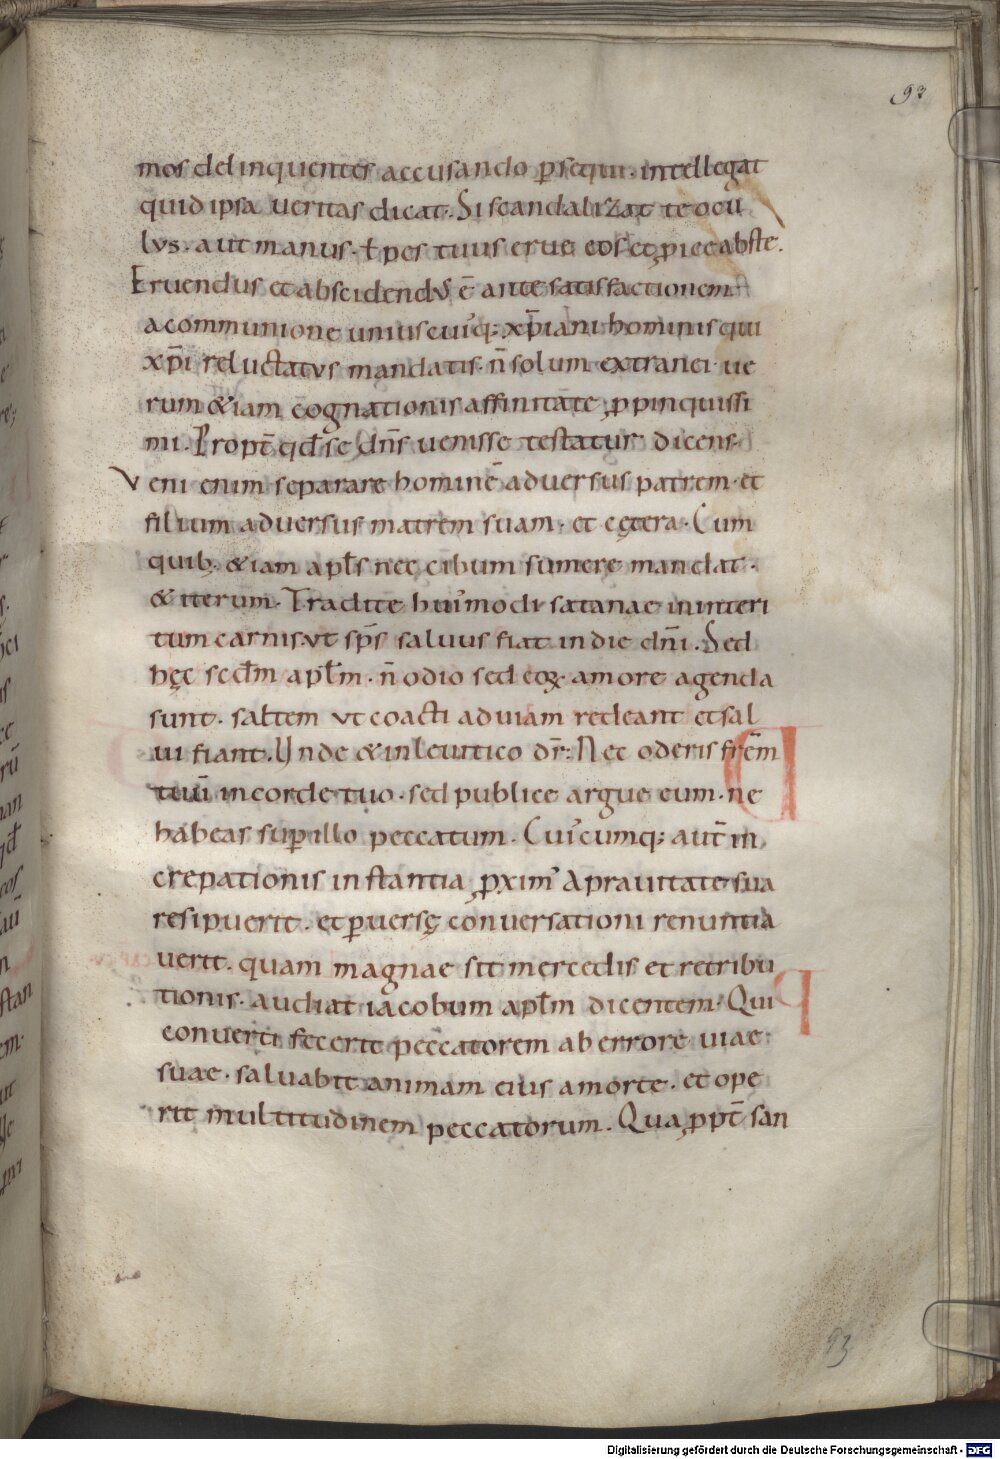 93
mos delinquentes accusando p̄sequi. intellegat
quid ipsa veritas dicat. Si scandalizat te ocu
lus. aut manus. ł pes tuus erue eos et ꝓice abste.
Eruendus et abscidendus ē ante satisfactionem
a communione uniuscuiꝰq; xp̄iani hominis qui
xp̄i reluctatus mandatis. n̄ solum extranei ue
rum &iam cognationis affinitate ꝓpinquissi
mi. Propt̄ qđ se dn̄s uenisse testatur dicens.
Veni enim separare hominē adversus patrem. et
filium adversus matrem suam. et cętera. Cum
quib; &iam apłs nec cibum sumere mandat.
& iterum. Tradite huiꝰmodi satanae in interi
tum carnis. ut sp̄s saluus fiat in die dn̄i. Sed
hęc scđm apłm. n̄ odio sed eoꝝ amore agenda
sunt. saltem ut coacti ad uiam redeant et sal
ui fiant. Unde & in leuitico dr̄. Nec oderis fr̄em
tuū in corde tuo. sed publice argue eum. ne
habeas sup̄ illo peccatum. Cuiꝰcumq; aut̄ in
crepationis instantia ꝓximꝰ a prauitate sua
resipuerit. et p̄uersę conuersationi renuntia
uerit. quam magnae sit mercedis et retribu
tionis. audiat iacobum apłm dicentem. Qui
conuerti fecerit peccatorem ab errore uiae
suae. saluabit animam eius a morte. et ope
rit multitudinem peccatorum. Qua ꝓpt̄ san
93
Digitalisierung gefördert durch die Deutsche Forschungsgemeinschaft - DFG